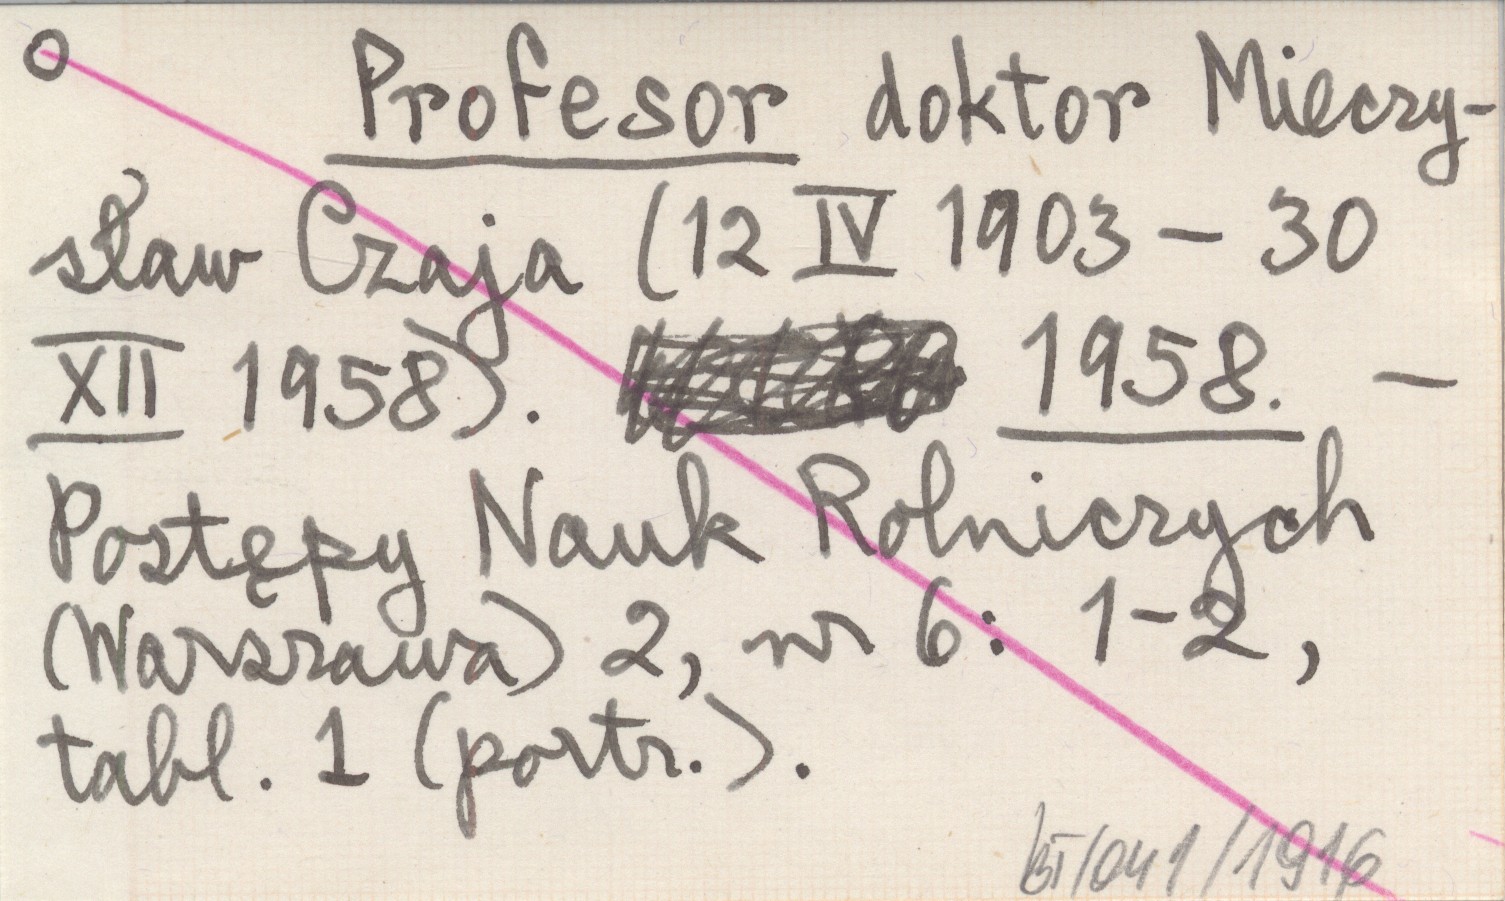 Profesor doktor Mieczy-
sław Czaja (12 IV 1903 – 30
XII 1958). 1958. –
Postępy Nauk Rolniczych
(Warszawa) 2, nr 6: 1-2,
tabl. 1 (portr.).
BT/041/1916